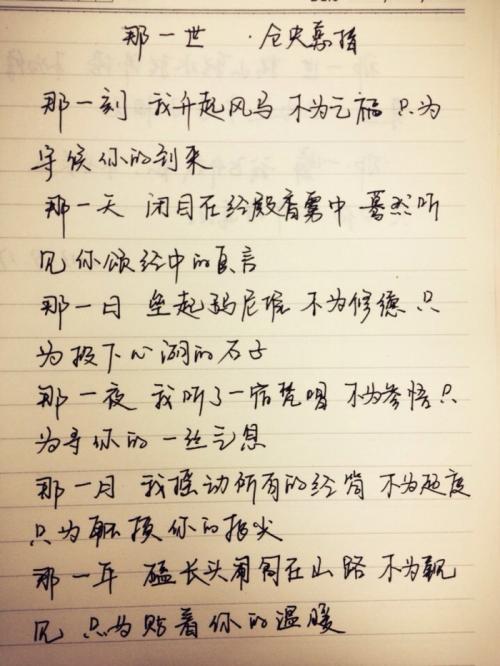 那一世 ·仓央嘉措
那一刻 我升起风马 不为乞福 只为
守候你的到来
那一天 闭目在经殿香雾中 蓦然听
见你颂经中的真言
那一日 垒起玛尼堆 不为修德 只
为投下心湖的石子
那一夜 我听了一宿梵唱 不为参悟 只
为寻你的一丝气息
那一月 我摇动所有的经筒 不为超度
只为触摸你的指尖
那一年 磕长头匍匐在山路 不为觐
见 只为贴着你的温暖